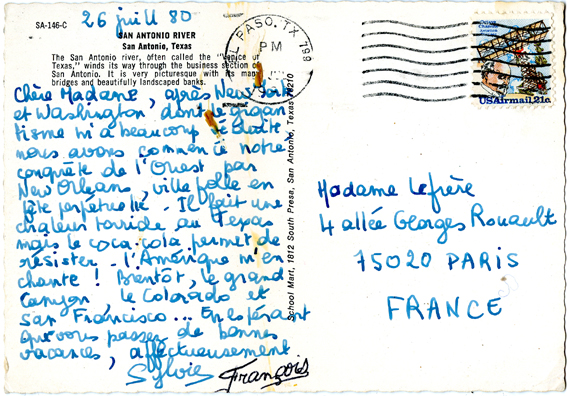 26 juill 80
SA-146-C
SAN ANTONIO RIVER
San Antonio, Texas
The San Antonio river, often called the "Venice of
Texas," winds its way through the business section of
San Antonio. It is very picturesque with its many
bridges and beautifully landscaped banks.
Chère Madame, après New York
et Washington dont le gigan
tisme m'a beaucoup
nous avons commencé notre
conquête de l'Ouest par
New Orleans, ville folle en
fête perpétuelle. Il fait une
chaleur torride au Texas
mais le coca-cola permet de
résister. L'Amérique m'en
chante ! Bientôt, le grand
Canyon, le Colorado et
San Francisco... En espérant
que vous passez de bonnes
vacances, affectueusement
Sylvie François
School Mart, 1812 South Presa, San Antonio, Texas 78210
EL PASO, TX 799
PM
USAirmail 21c
Madame Lefrère
4 allée Georges Rouault
75020 PARIS
FRANCE